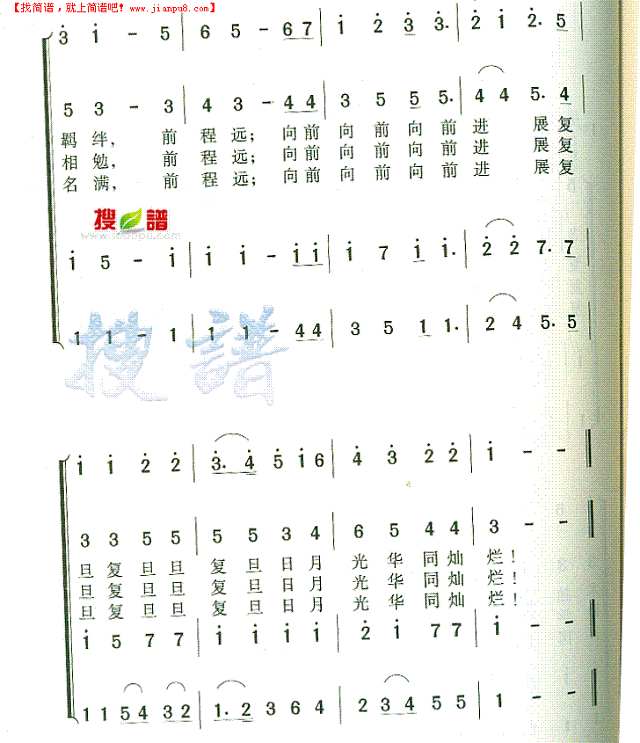 【找简谱，就上简谱吧！ www.jianpu8.com】
3 i - 5 | 6 5 - 6 7 | i 2 3 3. | 2 i 2. 5 |
5 3 - 3 | 4 3 - 4 4 | 3 5 5 5. | 4 4 5. 4 |
羁绊，前程远；向前向前向前进 展复
相勉，前程远；向前向前向前进 展复
名满，前程远；向前向前向前进 展复
搜谱
i 5 - i | i i - i i | i 7 i i. | 2 2 7. 7 |
1 1 - 1 | 1 1 - 4 4 | 3 5 1 1. | 2 4 5. 5 |
搜谱
i i 2 2 | 3. 4 5 i 6 | 4 3 2 2 | i - - ‖
3 3 5 5 | 5 5 3 4 | 6 5 4 4 | 3 - - ‖
旦复旦旦 复旦日月 光华同灿烂！
旦复旦旦 复旦日月 光华同灿烂！
旦复旦旦 复旦日月 光华同灿烂！
i 5 7 7 | i i i i | 2 i 7 7 | i - - ‖
1 1 5 4 3 2 | 1. 2 3 6 4 | 2 3 4 5 5 | 1 - - ‖